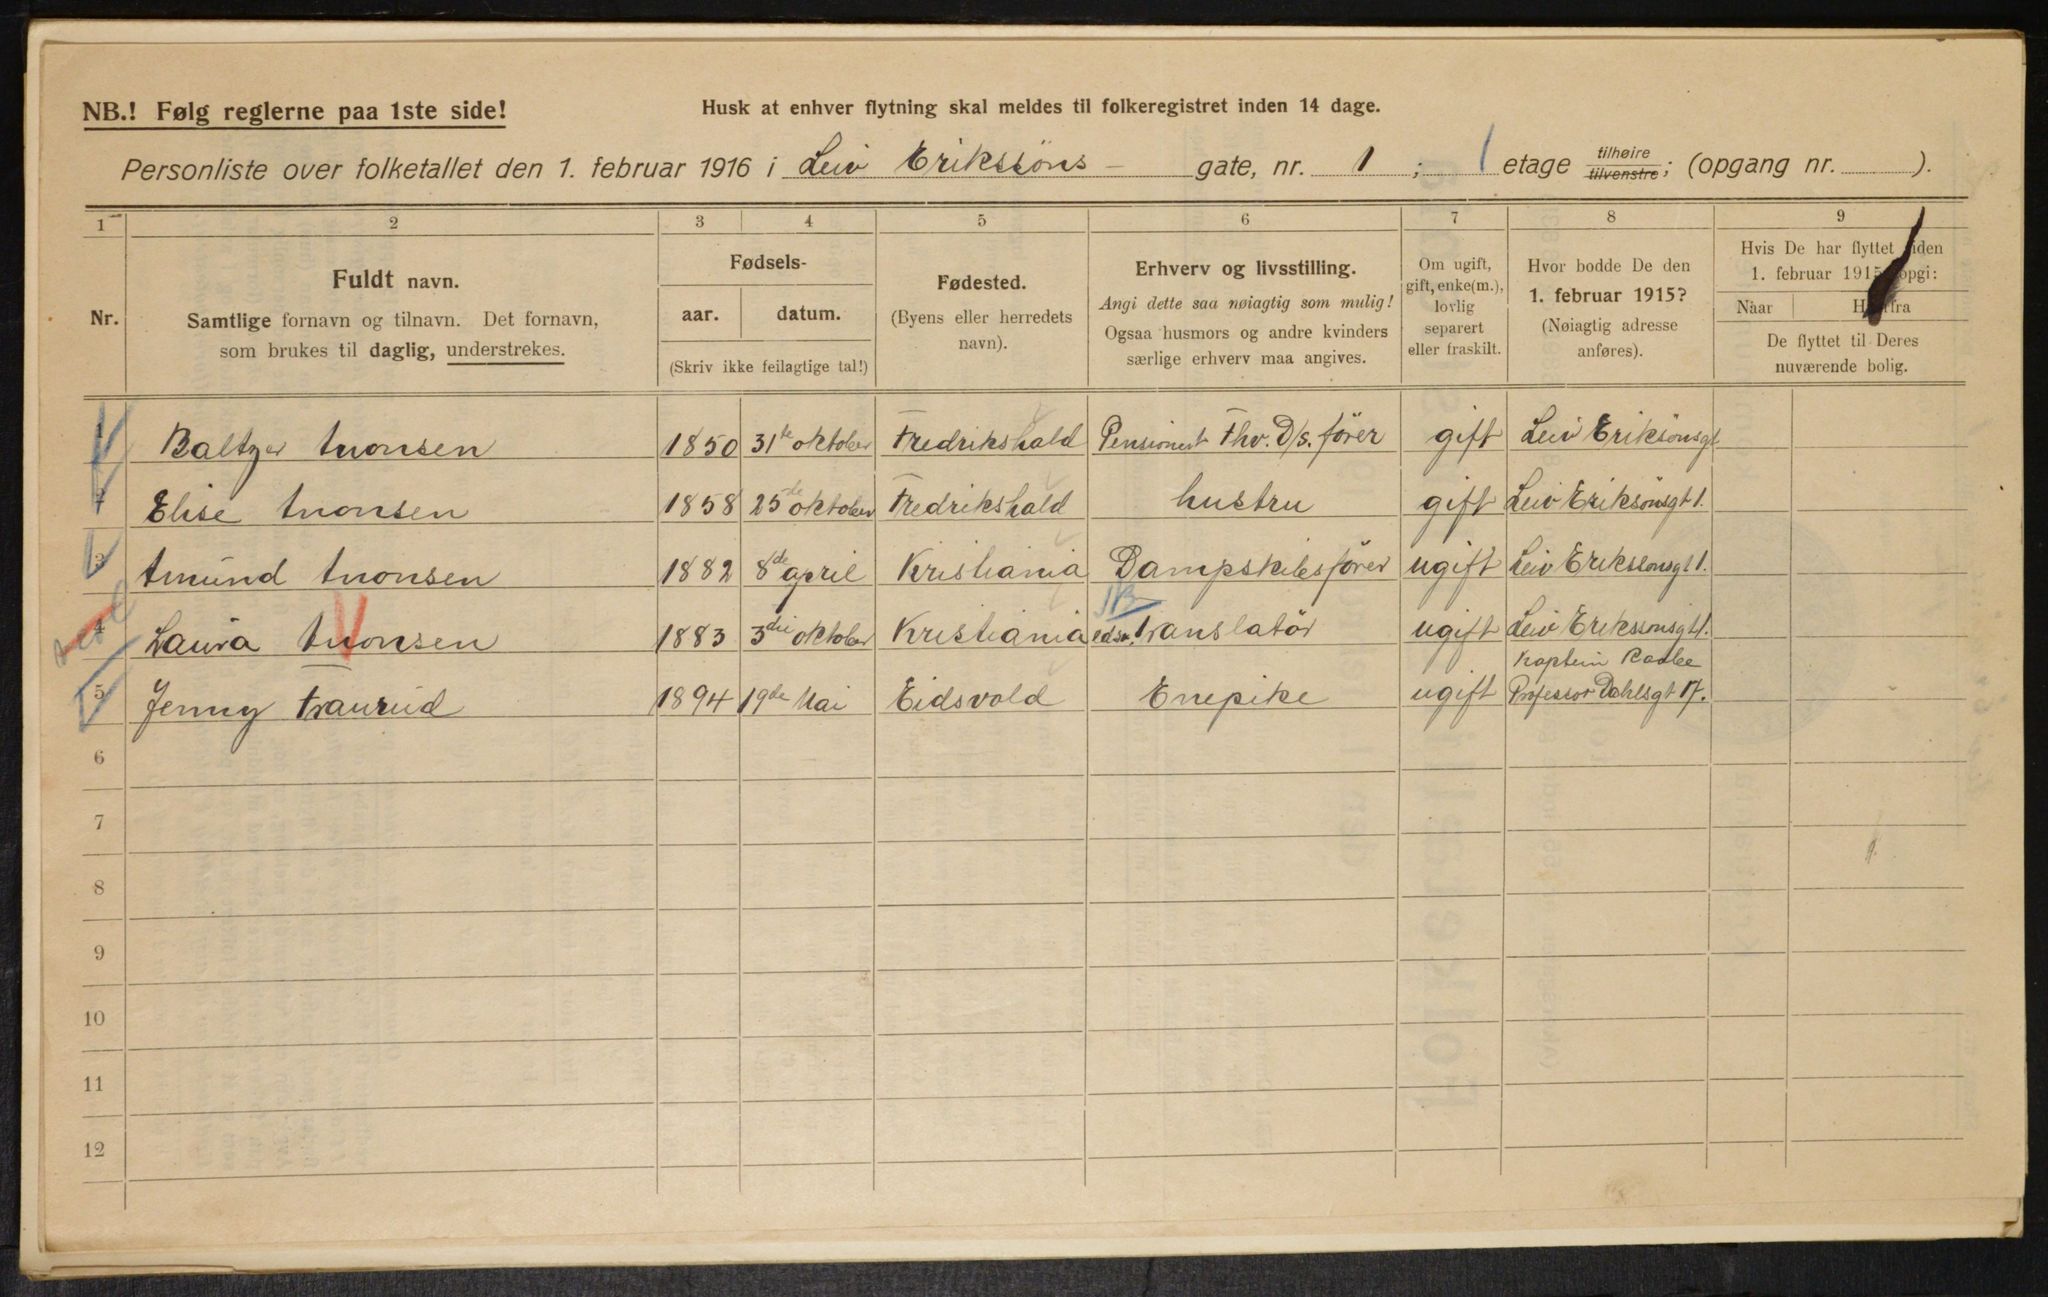 NB.! Følg reglerne paa 1ste side! Husk at enhver flytning skal meldes til folkeregistret inden 14 dage.
Personliste over folketallet den 1. februar 1916 i Leiv Erikssöns gate, nr. 1; 1 etage tilhøire tilvenstre; (opgang nr. ).
1 2 3 4 5 6 7 8 9
Nr.
Fuldt navn.
Samtlige fornavn og tilnavn. Det fornavn,
som brukes til daglig, understrekes.
Fødsels-
aar. datum.
(Skriv ikke feilagtige tal!)
Fødested.
(Byens eller herredets
navn).
Erhverv og livsstilling.
Angi dette saa nøiagtig som mulig!
Ogsaa husmors og andre kvinders
særlige erhverv maa angives.
Om ugift,
gift, enke(m.),
lovlig
separert
eller fraskilt.
Hvor bodde De den
1. februar 1915?
(Nøiagtig adresse
anføres).
Hvis De har flyttet siden
1. februar 1915 opgi:
Naar Hvorfra
De flyttet til Deres
nuværende bolig.
1 Baltzer Amonsen 1850 31te oktober Fredrikshald Pensionert Fhv. D/s. förer gift Leiv Eriksönsgt
2 Elise Amonsen 1858 25de oktober Fredrikshald hustru gift Leiv Eriksönsgt 1.
3 Amund Amonsen 1882 8de april Kristiania Dampskibsförer ugift Leiv Erikssönsgt 1.
4 Laura Amonsen 1883 3die oktober Kristiania edsv. translatör ugift Leiv Erikssönsgt 1.
Kaptein
5 Jenny Traurud 1894 19de Mai Eidsvold Enepike ugift Professor Dahlsgt 17.
6
7
8
9
10
11
12